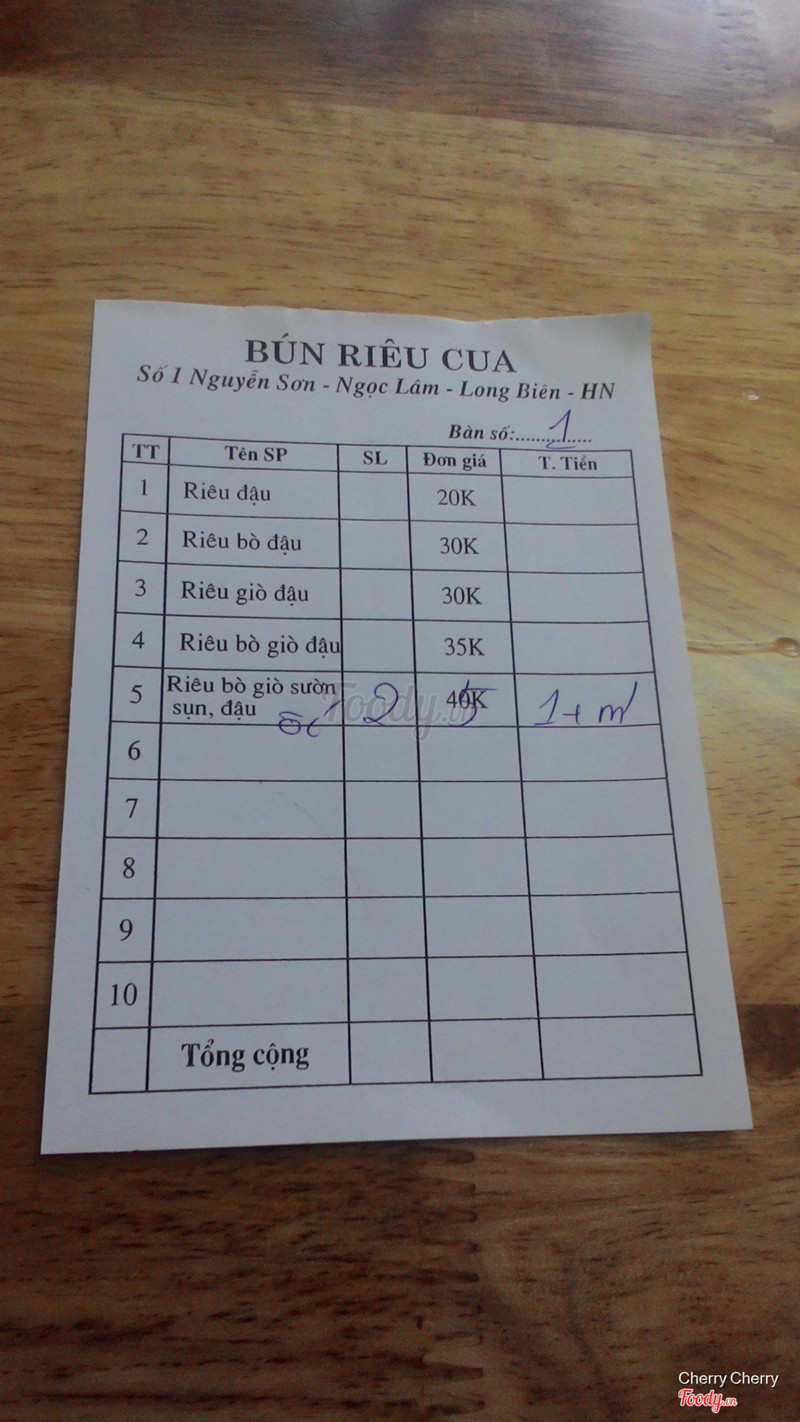 BÚN RIÊU CUA
Số 1 Nguyễn Sơn - Ngọc Lâm - Long Biên - HN
Bàn số:...............1
TT Tên SP SL Đơn giá T. Tiền
1 Riêu đậu 20K
2 Riêu bò đậu 30K
3 Riêu giò đậu 30K
4 Riêu bò giò đậu 35K
5 Riêu bò giò sườn sụn, đậu ốc 2 40K 5 1 + m
6
7
8
9
10
Tổng cộng
Foody.vn
Cherry Cherry
Foody.vn